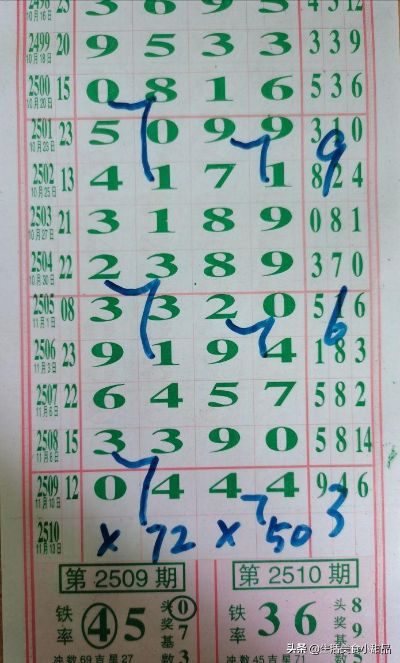 2498 10月16日 25 3 6 9 5 4 3 12
2499 10月18日 20 9 5 3 3 3 3 9
2500 10月20日 15 0 8 1 6 5 3 6
2501 10月23日 23 5 0 9 9 3 1 0
2502 10月25日 13 4 1 7 1 8 2 4
2503 10月27日 21 3 1 8 9 0 8 1
2504 10月30日 22 2 3 8 9 3 7 0
2505 11月1日 08 3 3 2 0 5 1 6
2506 11月3日 23 9 1 9 4 1 8 3
2507 11月6日 22 6 4 5 7 5 8 2
2508 11月8日 15 3 3 9 0 5 8 14
2509 11月10日 12 0 4 4 4 9 4 6
2510 11月13日 X 72 X 50 3
第 2509 期 第 2510 期
铁率 4 5 头奖基数 0 7 3 铁率 3 6 头奖基 8 9 5
冲数69吉星27 冲数45吉星71
头条 @生活美食小甜品